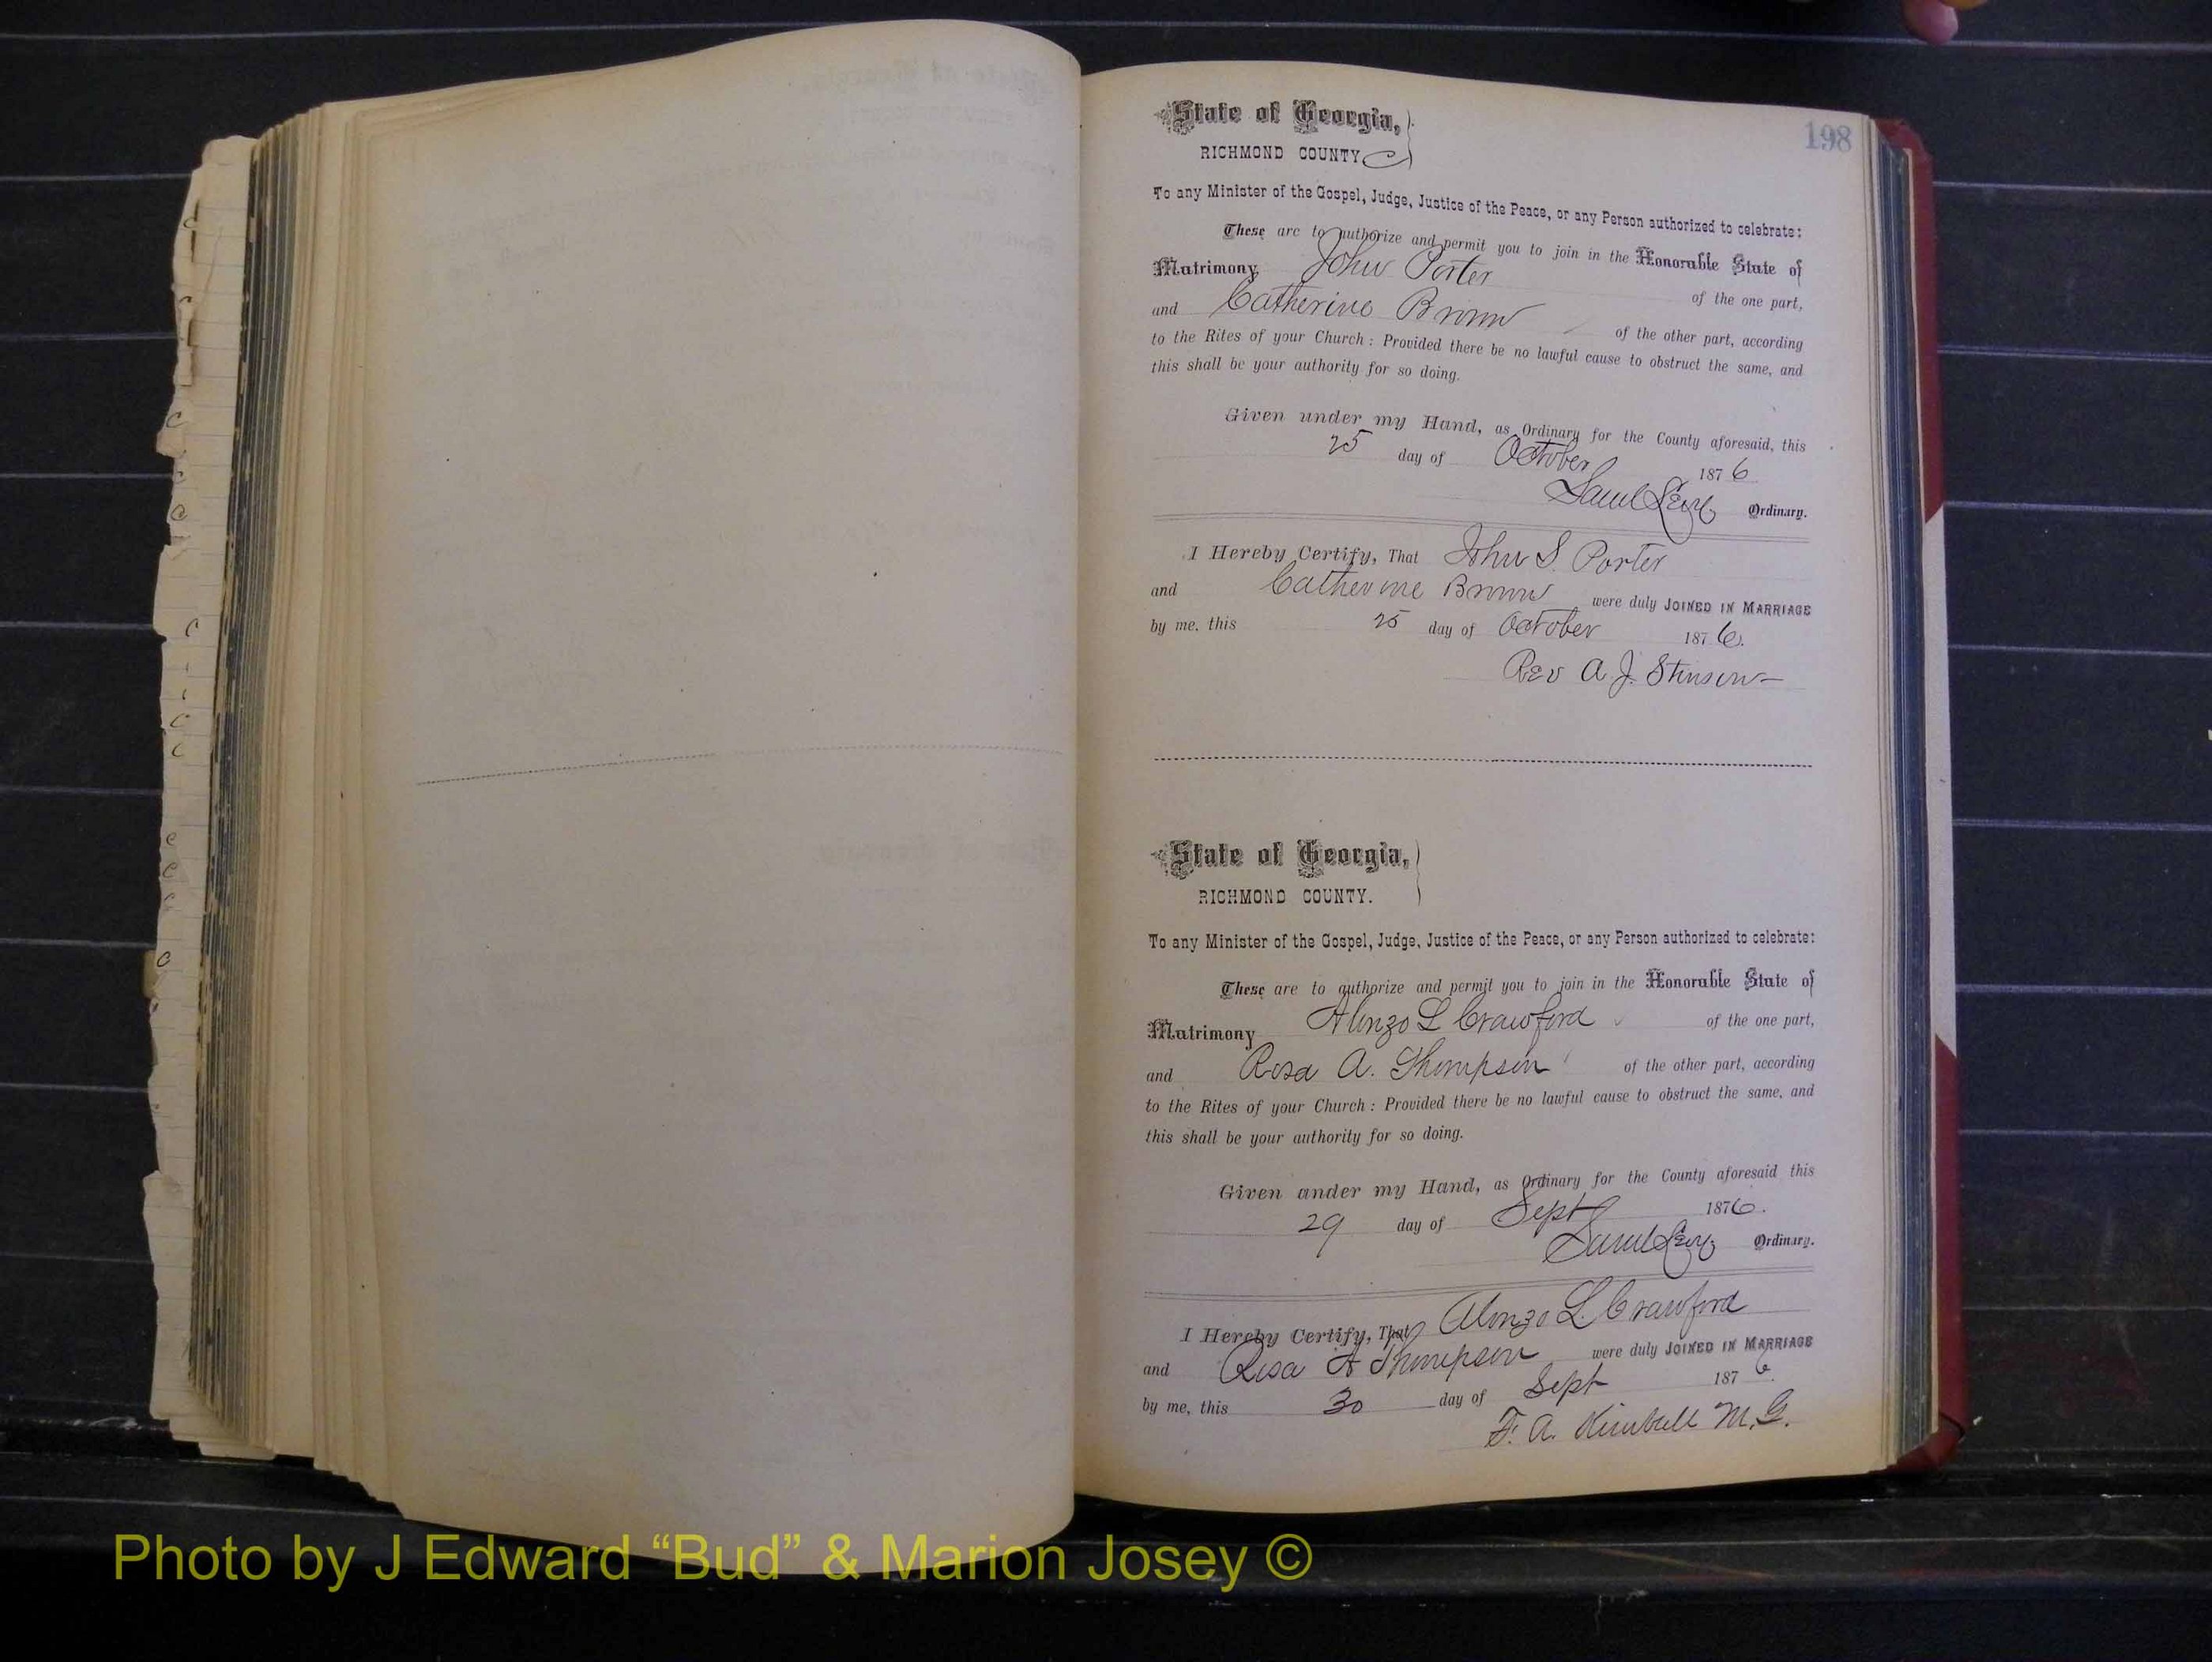 198
State of Georgia,
RICHMOND COUNTY C
To any Minister of the Gospel, Judge, Justice of the Peace, or any Person authorized to celebrate:
These are to authorize and permit you to join in the Honorable State of
Matrimony John Porter of the one part,
and Catherine Brown of the other part, according
to the Rites of your Church: Provided there be no lawful cause to obstruct the same, and
this shall be your authority for so doing.
Given under my Hand, as Ordinary for the County aforesaid, this
25 day of October 1876
Saml Levy Ordinary.
I Hereby Certify, That John S. Porter
and Catherine Brown were duly JOINED IN MARRIAGE
by me, this 25 day of October 1876.
Rev A. J. Stinson
State of Georgia,
RICHMOND COUNTY.
To any Minister of the Gospel, Judge, Justice of the Peace, or any Person authorized to celebrate:
These are to authorize and permit you to join in the Honorable State of
Matrimony Alonzo L Crawford of the one part,
and Rosa A. Thompson of the other part, according
to the Rites of your Church: Provided there be no lawful cause to obstruct the same, and
this shall be your authority for so doing.
Given under my Hand, as Ordinary for the County aforesaid this
29 day of Sept 1876.
Saml Levy Ordinary.
I Hereby Certify, That Alonzo L. Crawford
and Rosa A Thompson were duly JOINED IN MARRIAGE
by me, this 30 day of Sept 1876
F. A. Kimball M.G.
Photo by J Edward “Bud” & Marion Josey ©